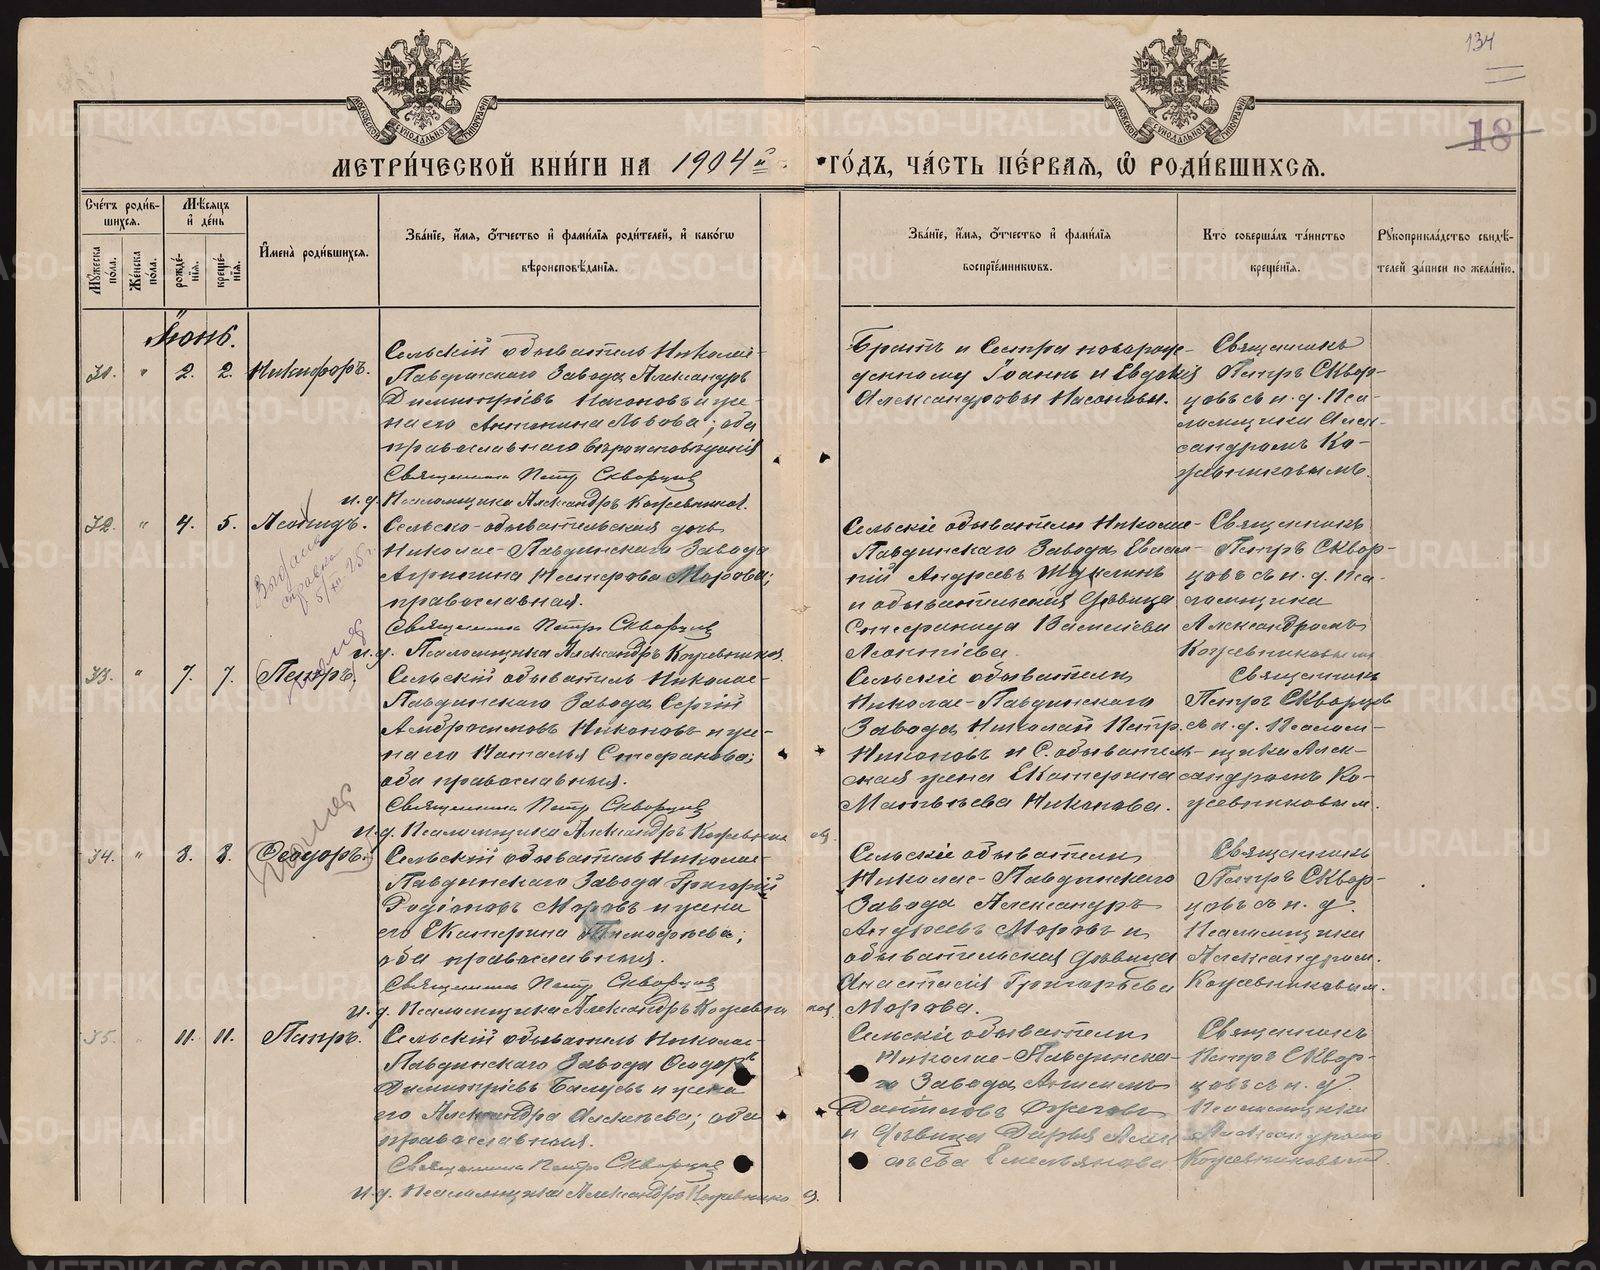 134
18
МЕТРИ́ЧЕСКОЙ КНИ́ГИ НА 1904 й ГО́ДЪ, ЧА́СТЬ ПЕ́РВАЯ, Ѽ РОДИ́ВШИХСѦ.
Сче́тъ роди́вшихся.
Мѣ́сяцъ и҆ де́нь
И҆мена̀ роди́вшихся.
Зва́нїе, и҆́мя, ѻ҆́тчество и҆ фами́лїя роди́телей, и҆ како́гѡ
вѣроисповѣ́данїя.
Зва́нїе, и҆́мя, ѻ҆́тчество и҆ фами́лїя
воспрїе́мниковъ.
Кто̀ соверша́лъ та́инство
креще́нїя.
Рꙋкоприкла́дство свидѣ́-
телей за́писи по жела́нїю.
Мꙋ́жеска по́ла.
Же́нска по́ла.
рожде́нїя.
креще́нїя.
Іюнь.
31. " 2. 2. Никифоръ.
Сельскій обыватель Николае-
Павдинскаго Завода Александръ
Димитріевъ Насоновъ и же-
на его Антонина Львова; оба
православнаго вѣроисповѣданія
Священникъ Петръ Скворцовъ
и. д. Псаломщика Александръ Кожевниковъ.
Братъ и Сестра новорож-
денному Іоаннъ и Евдокія
Александровы Насоновы.
Священникъ
Петръ Сквор-
цовъ съ и. д. Пса-
ломщика Алек-
сандромъ Ко-
жевниковымъ.
32. " 4. 5. Леонидъ.
Выдана
справка
5/XII 25 г.
Сельско-обывательская дочь
Николае-Павдинскаго Завода
Агрипина Нестерова Морова;
православная.
Священникъ Петръ Скворцовъ
и. д. Псаломщика Александръ Кожевников.
Сельскіе обыватели Николае-
Павдинскаго Завода
Андреевъ
и обывательская дѣвица
Стефанида Василіева
Леонтіева.
Священникъ
Петръ Сквор-
цовъ съ и. д. Пса-
ломщика
Александромъ
Кожевниковымъ
33. " 7. 7. Петръ.
Сельскій обыватель Николае-
Павдинскаго Завода Сергій
Амвросимовъ Никоновъ и же-
на его Наталья Стефанова;
оба православныя.
Священникъ Петръ Скворцовъ
и. д. Псаломщика Александръ Кожевниковъ
Сельскіе обыватели
Николае-Павдинскаго
Завода Николай Петр.
Никоновъ и С. обыватель-
ская жена Екатерина
Матвѣева Никонова.
Священникъ
Петръ Скворцовъ
съ и. д. Псалом-
щика Алек-
сандромъ Ко-
жевниковым.
34. " 8. 8. Ѳеодоръ.
Сельскій обыватель Николае-
Павдинскаго Завода Григорій
Родіоновъ Моровъ и жена
его Екатерина Тимофѣева;
оба православныя.
Священникъ Петръ Скворцовъ
и. д. Псаломщика Александръ Кожевников
Сельскіе обыватели
Николае-Павдинскаго
Завода Александръ
Андреевъ Моровъ и
обывательская дѣвица
Анастасія Григорьева
Морова.
Священникъ
Петръ Сквор-
цовъ съ и. д.
Псаломщика
Александром.
Кожевниковым.
35. " 11. 11. Петръ.
Сельскій обыватель Николае-
Павдинскаго Завода Ѳеодоръ
Димитріевъ и жена
его Александра Алексѣева; оба
православныя.
Священникъ Петръ Скворцовъ
и. д. Псаломщика Александръ Кожевников
Сельскіе обыватели
Николае-Павдинска-
го Завода
Даниловъ
и дѣвица Дарья Алек-
сѣева Емельянова
Священникъ
Петръ Сквор-
цовъ съ и. д.
Псаломщика
Александромъ
Кожевниковымъ.
METRIKI.GASO-URAL.RU